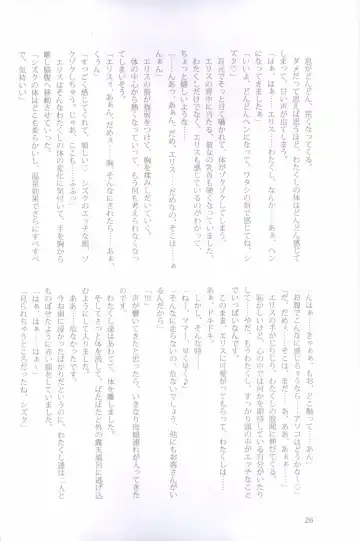 息がどんどん、荒くなってしまう。
ダメだって思えば思うほど、わたくしの体はどんどん感じてしまって、甘い声が出てしまう。
「はぁ、はぁ……エリス……わたくし、なんか……あぁ、ヘンになってきましたぁ」
「いいよ、どんどんヘンになって、ワタシの指で感じてね、シズク♡」
耳元でそっとそして囁かれて、体がゾクゾクしてしまう。
エリスの背中に当たる、彼女の乳首も硬くなっていて、
わたくしだけでなく、エリスも感じているのがわかって、
ちょっと嬉しいような……。
「……んあっ、あぁん、だめ、エリス……だめなの、そこは……ぁくぅん」
エリスの指が強弱をつけて、胸を揉みしだいていく。
体の中心から熱くなっていって、もう何も考えられなくなってしまいそう。
「エリス、あぁん、だめぇ……胸、そんなにされたら……あぁ、くぅん」
「すっごく感じてくれて、嬉しい♡ シズクのエッチな顔、ゾクゾクしちゃう。じゃあ、ここも……ふふっ」
エリスはそんなわたくしの体の変化に気付いて、手を胸から離し脇腹へ移動させていった。
「シズクの体はどこも柔らかいし、温泉効果でさらにすべすべで、気持ちいい」
んはぁ……きゃぁぁっ、もお、どこ触って……あん」
「お腹でこんなに感じちゃうなら……アソコはどうかな～♡」
「だ、だめぇ……そこは、まだ……あ、ああ、あぁぁ……」
エリスの手がじりじりと、わたくしの股間に伸びてくる。
恥ずかしいけど、心の中では何かを期待している自分がいたりして……やだ、もうわたくし、すっかり頭の中がエッチなことでいっぱいなんです。
このままエリスに可愛がってもらって、わたくしは……
あぁ、ドキドキ……。
しかし、そんな時――
「ねー、ママー、早く早く♪」
「そんなに走らない、危ないでしょう、他にもお客さんがいるんだから」
「!!」
声が響いてきたと思ったら、いきなり母娘連れが入ってきた。
わたくし達はあわてて、体を離しました。
そしてさっと体を流して、ばたばたと外の露天風呂に逃げ込むようにして入りました。
ああ……危なかった。
今お湯に浸かったばかりだというのに、わたくし達は二人とものぼせたように赤い顔をしていました。
「はぁ、はぁ……はぁ～」
「見られちゃうところだったね、シズク」
26